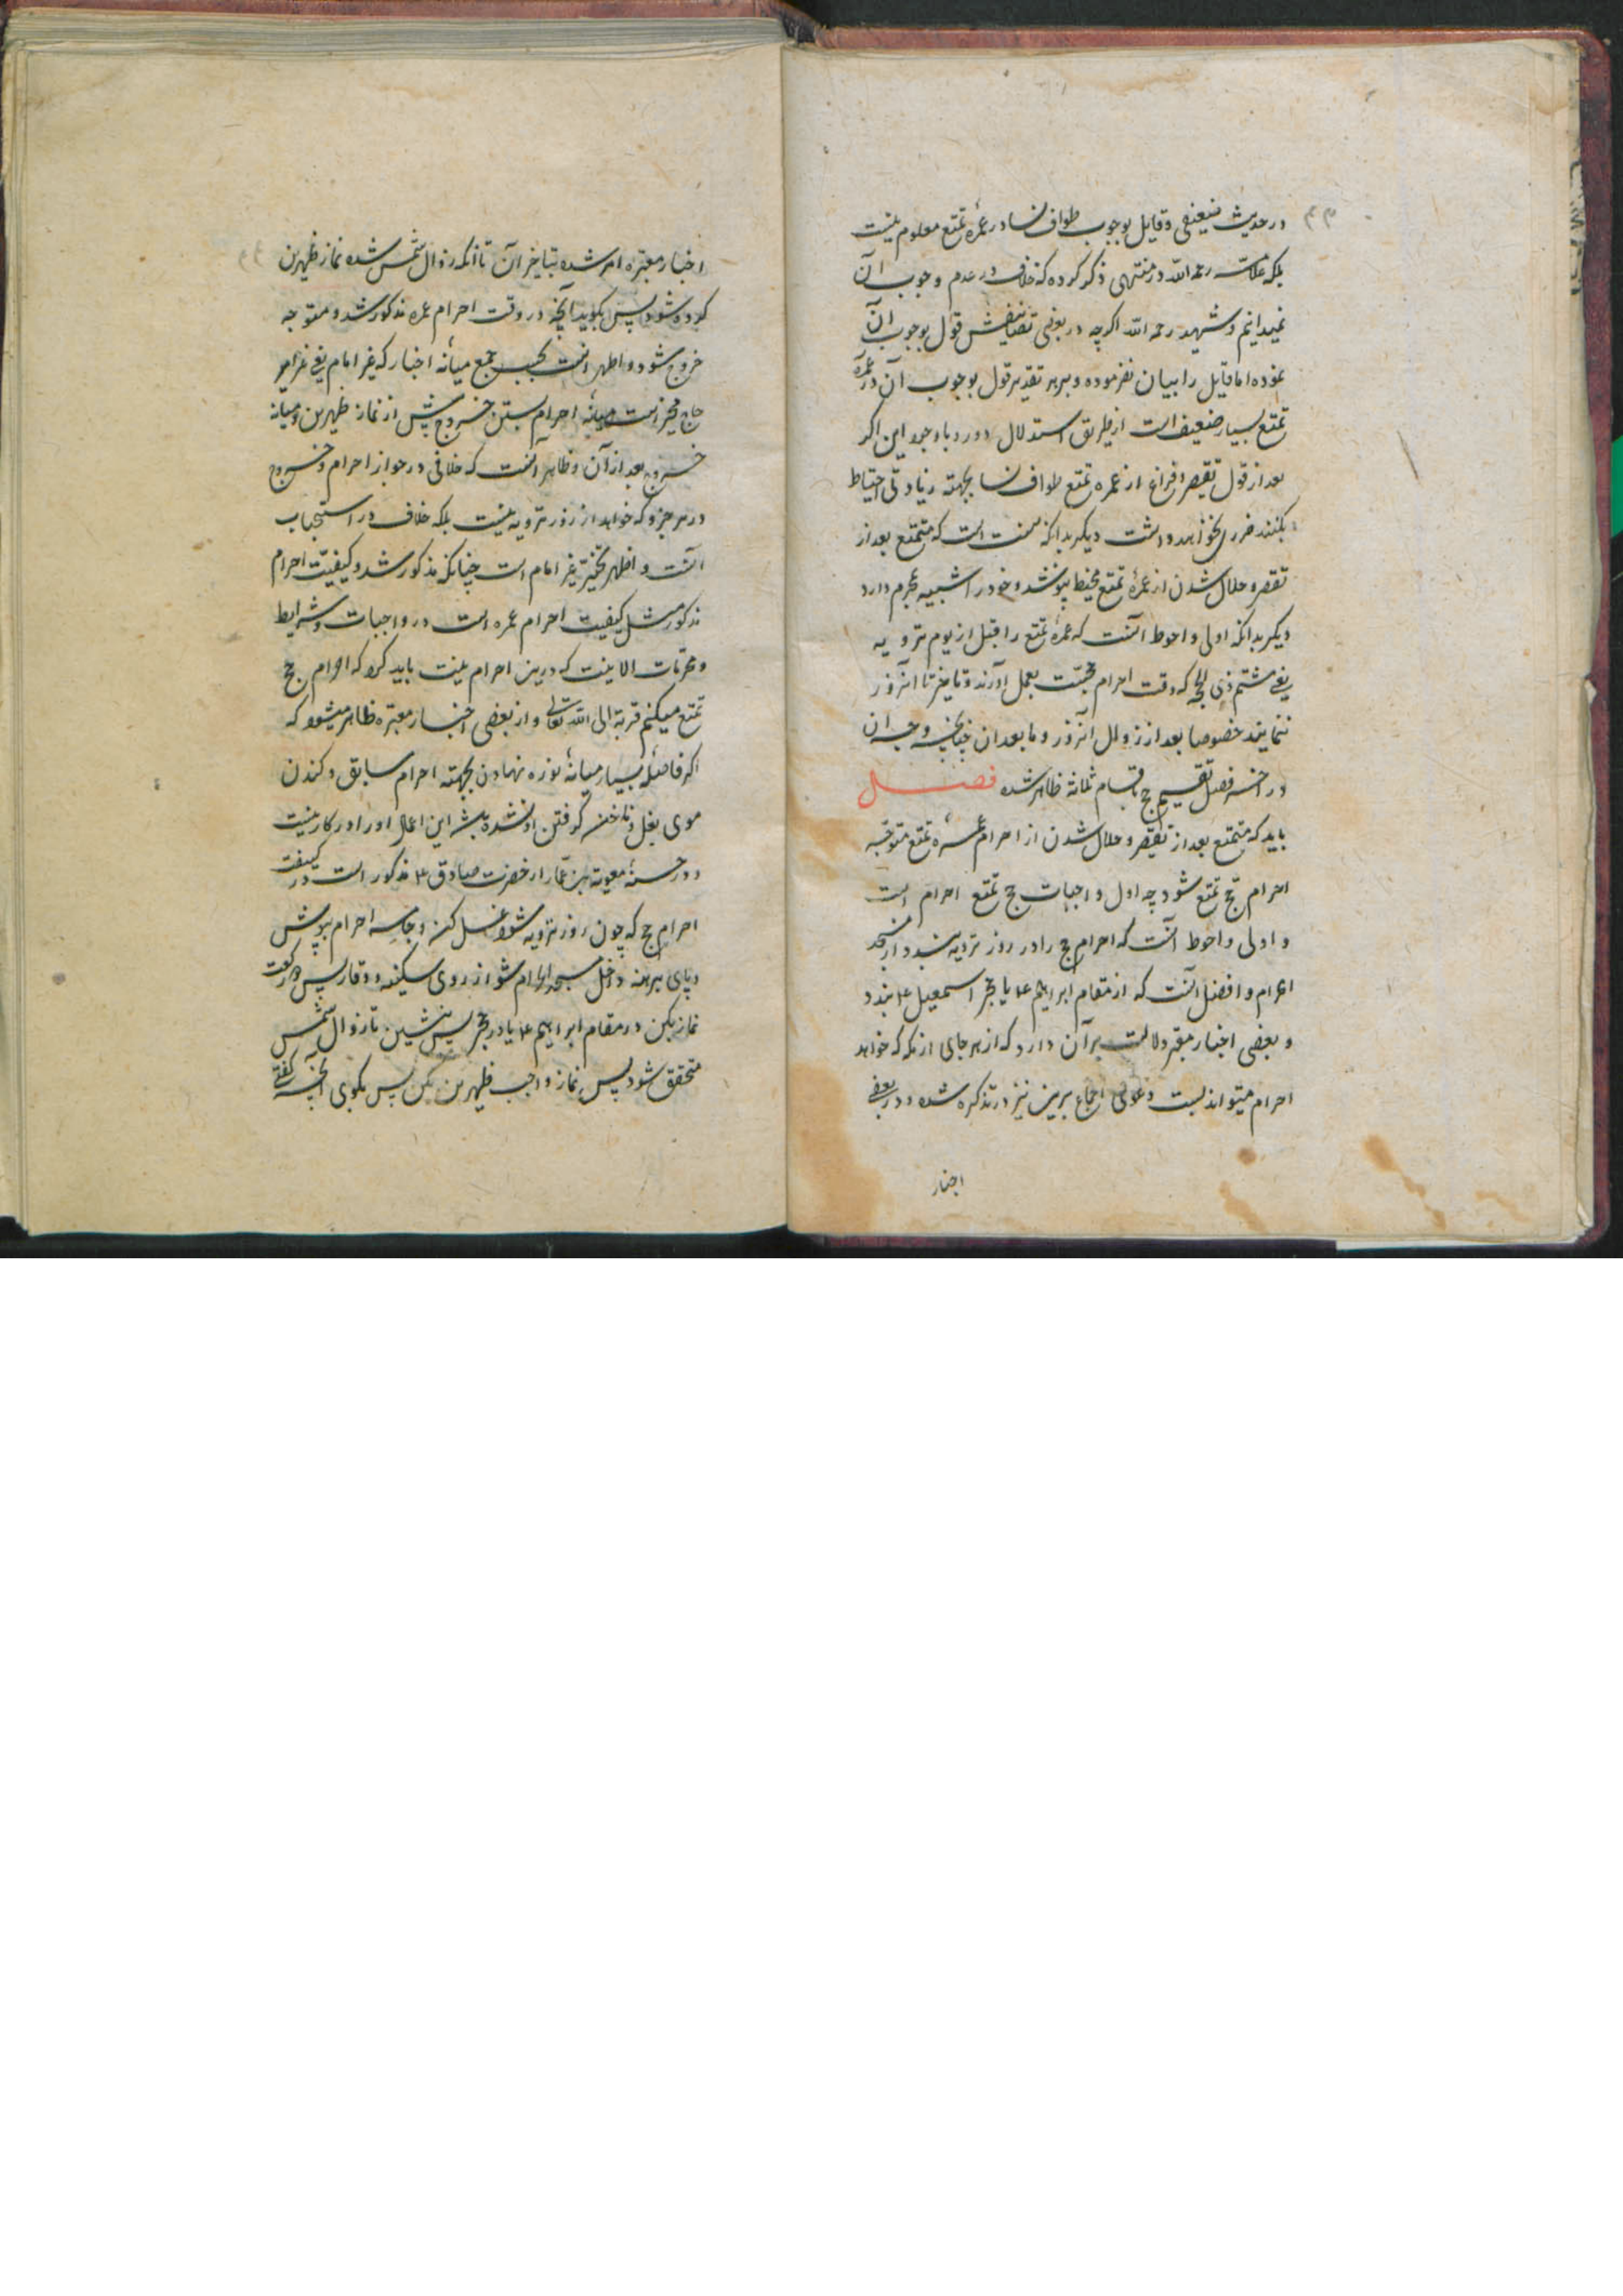 در حدیث ضعیفی و قایل بوجوب طواف نسا در عمرهٔ تمتع معلوم نیست
بلکه علامه رحمه الله در منتهی ذکر کرده که خلاف در عدم وجوب آن
نمیدانیم و شهید رحمه الله اگرچه در بعضی تصانیفش قول بوجوب آن
نموده اما قایل را بیان نفرموده و بر هر تقدیر قول بوجوب آن در عمرهٔ
تمتع بسیار ضعیف است از طریق استدلال و با وجود این اگر
بعد از قول تقصیر و فراغ از عمره تمتع طواف نسا بجهته زیادتی احتیاط
بکنند ضرر نخواهد داشت دیگر بدانکه سنت است که متمتع بعد از
تقصیر و حلال شدن از عمرهٔ تمتع مخیط نپوشد و خود را شبیه بمحرم دارد
دیگر بدانکه اولی و احوط آنست که عمرهٔ تمتع را قبل از یوم ترویه
یعنی هشتم ذی الحجه که وقت احرام حجست بعمل آورند و تاخیر تا آنروز
ننمایند خصوصا بعد از زوال آنروز و ما بعد آن چنانچه وجه آن
در آخر فصل تقسیم حج باقسام ثلاثه ظاهر شده فصل
باید که متمتع بعد از تقصیر و حلال شدن از احرام عمرهٔ تمتع متوجه
احرام حج تمتع شود چه اول واجبات حج تمتع احرام است
و اولی و احوط آنست که احرام حج را در روز ترویه ببندد از مسجد
الحرام و افضل آنست که از مقام ابراهیم ع یا حجر اسمعیل ع ببندد
و بعضی اخبار معتبر دلالت بر آن دارد که از هر جای از مکه که خواهد
احرام میتواند بست و دعوی اجماع برین نیز در تذکره شده و در بعضی
اخبار
اخبار معتبره امر شده بتاخیر آن تا آنکه زوال شمس شده نماز ظهرین
کرده شود پس بگوید آنچه در وقت احرام عمره مذکور شد و متوجه
خروج شود و اظهر آنست بحسب جمع میانه اخبار که غیر امام یعنی غیر امیر
حاج مخیر است میانه احرام بستن و خروج پیش از نماز ظهرین و میانه
خروج بعد از آن و ظاهر آنست که خلافی در جواز احرام و خروج
در هر جزو که خواهد از روز ترویه نیست بلکه خلاف در استحباب
آنست و اظهر تخییر غیر امام است چنانکه مذکور شد و کیفیت احرام
مذکور مثل کیفیت احرام عمره است در واجبات و شرایط
و محرمات الا نیت که درین احرام نیت باید کرد که احرام حج
تمتع میکنم قربة الی الله تعالی و از بعضی اخبار معتبره ظاهر میشود که
اگر فاصله بسیار میانهٔ نوره نهادن بجهته احرام سابق و کندن
موی بغل و ناخن گرفتن او نشده باشد این اعمال او را در کار نیست
و در حسنهٔ معویة بن عمار از حضرت صادق ع مذکور است در کیفیت
احرام حج که چون روز ترویه شود غسل کن و جامه احرام بپوش
و پای برهنه داخل مسجد الحرام شو از روی سکینه و وقار پس دو رکعت
نماز بکن در مقام ابراهیم ع یا در حجر پس بنشین تا زوال شمس
متحقق شود پس نماز واجب ظهرین بکن پس بگوی آنچه گفتی